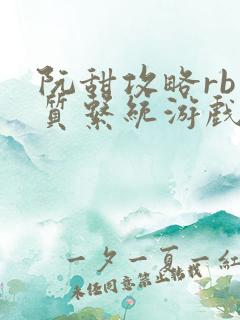 阮甜攻略rb
质系统游戏
一夕一夏一红
未经同意禁止转载